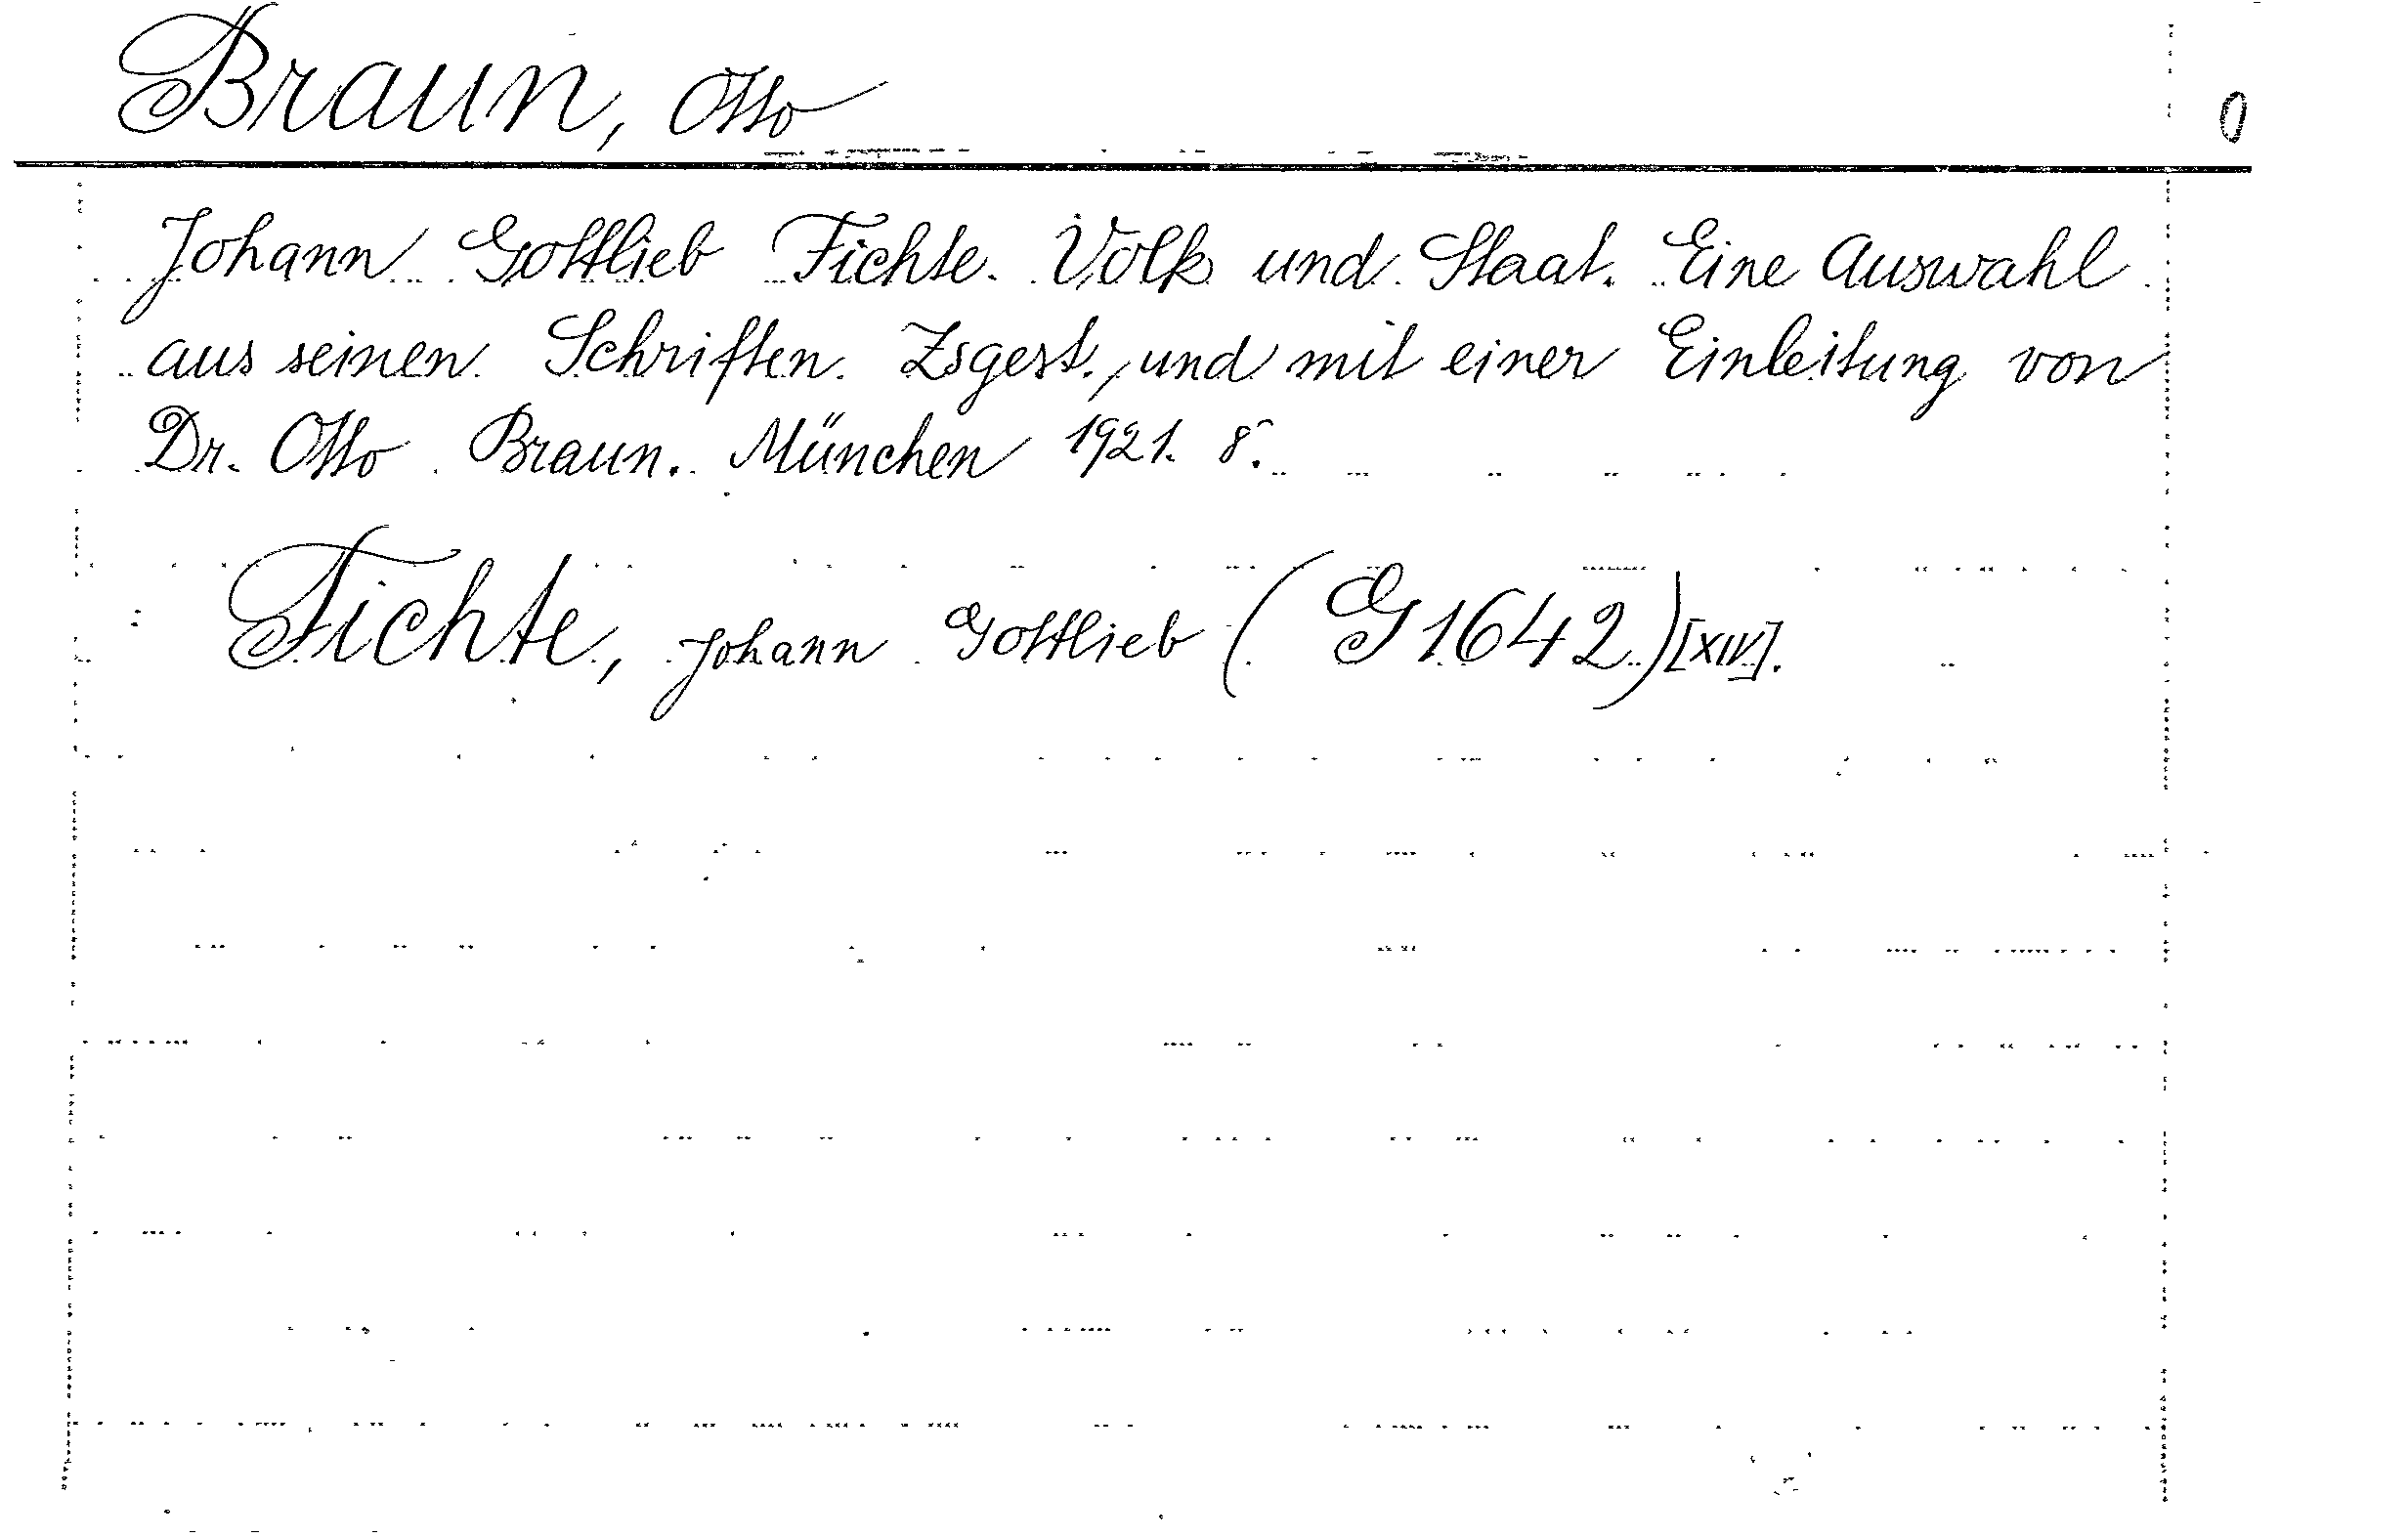 Braun, Otto
0
Johann Gottlieb Fichte. Volk und Staat. Eine Auswahl
aus seinen Schriften. Zsgest., und mit einer Einleitung von
Dr. Otto Braun. München 1921. 8°.
Fichte, Johann Gottlieb (G1642) [XIV].